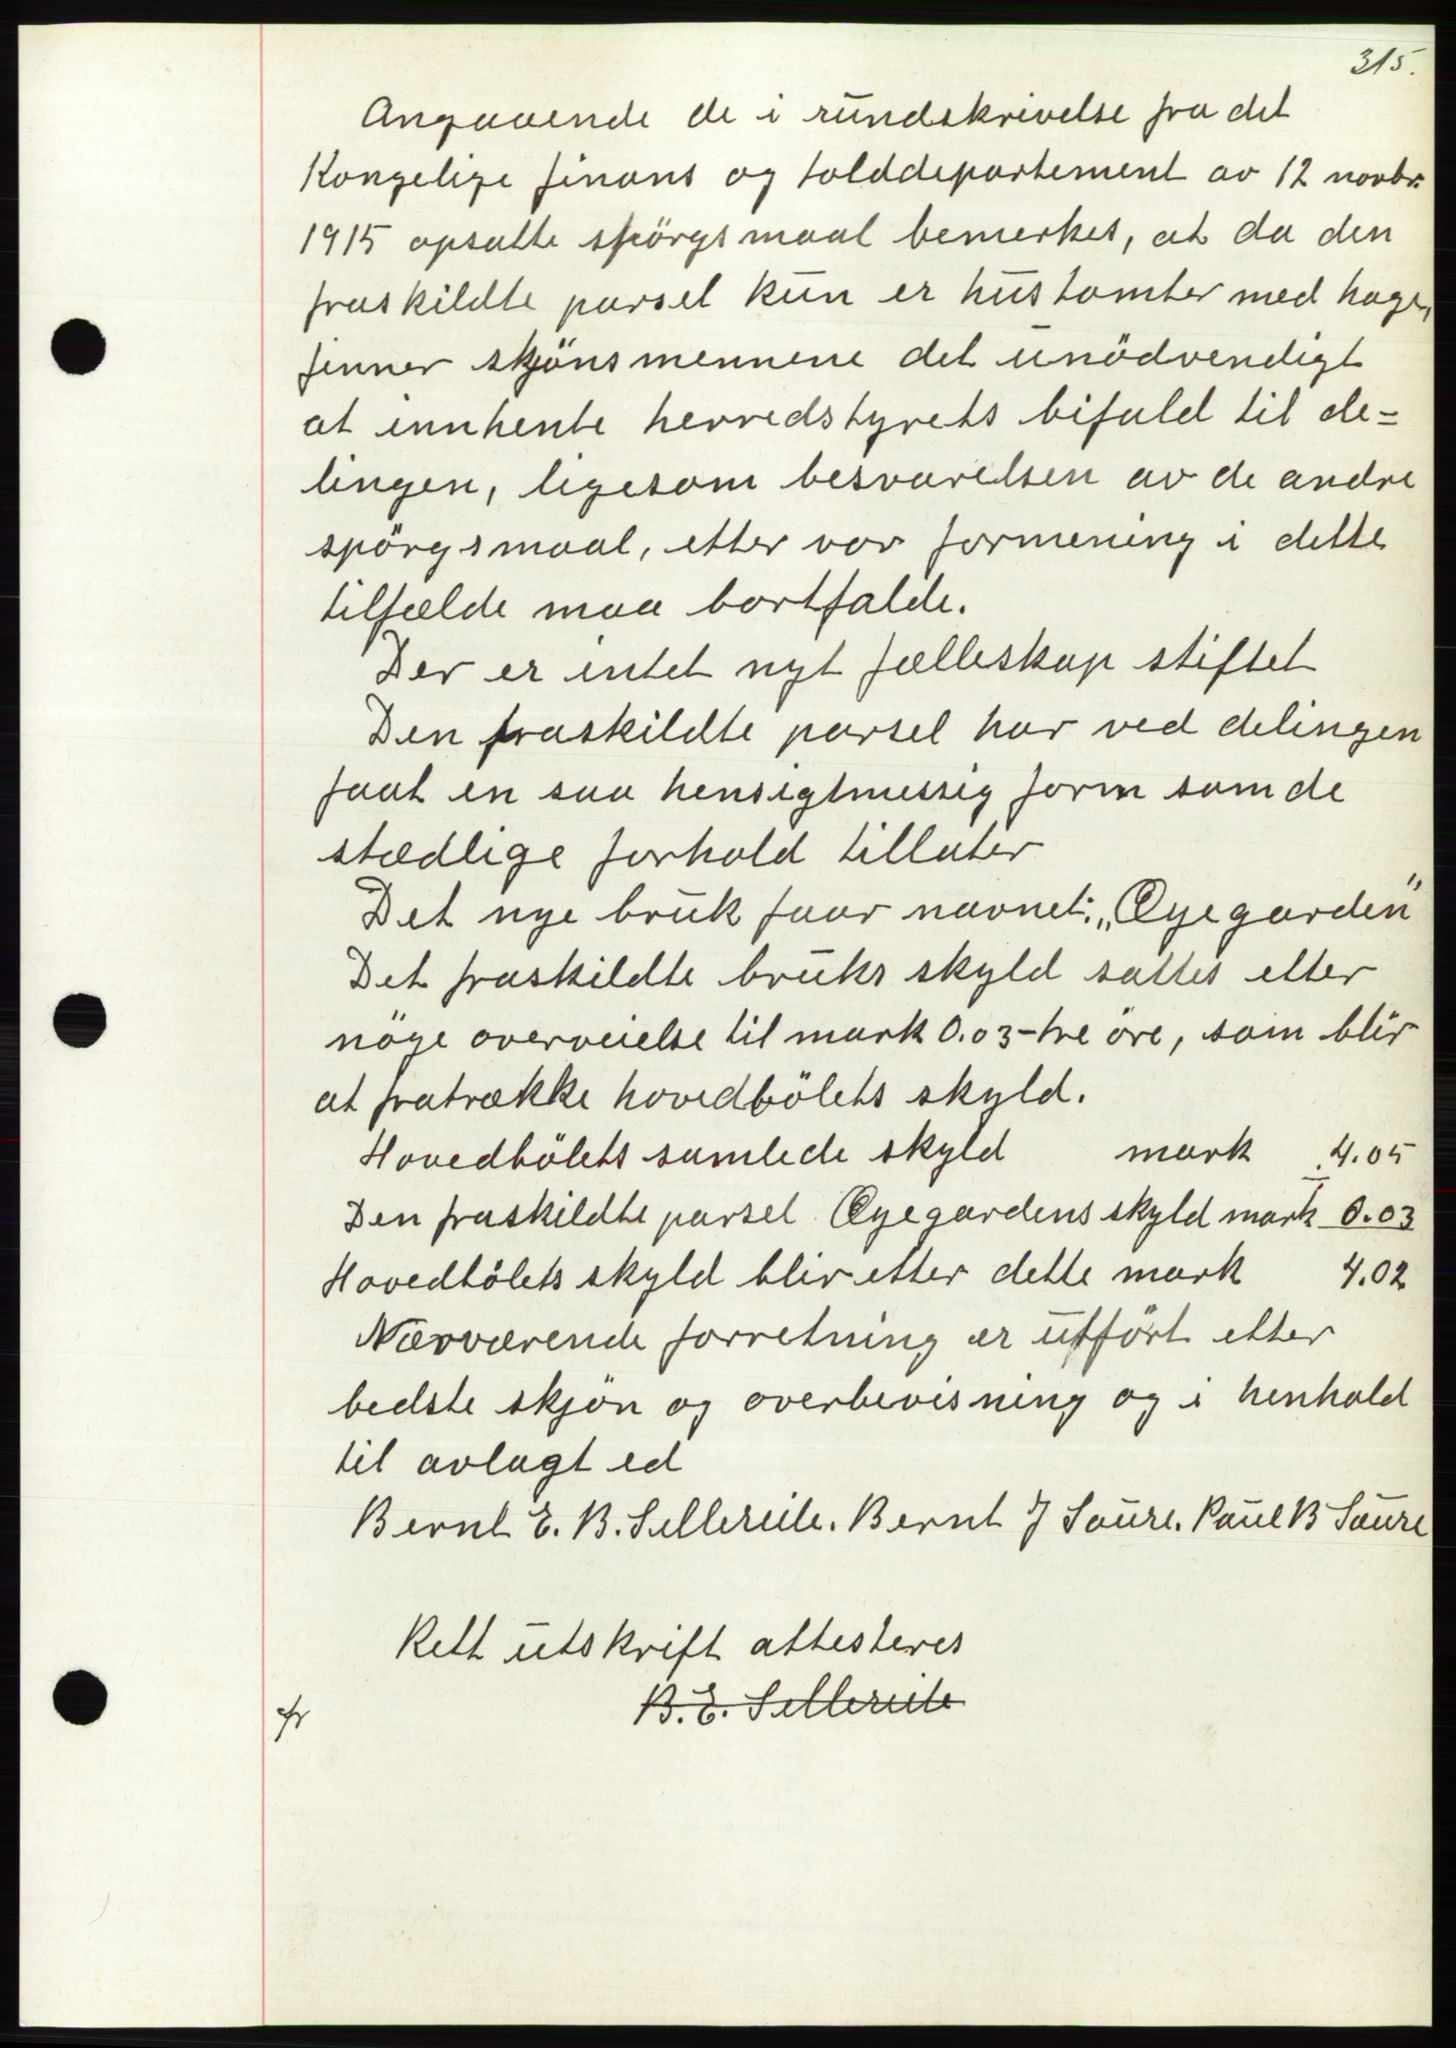 315.
Angaaende de i rundskrivelse fra det
Kongelige finans og tolddepartement av 12 novbr.
1915 opsatte spörgsmaal bemerkes, at da den
fraskildte parsel kun er hustomter med hage,
finner skjönsmennene det unödvendigt
at innhente herredstyrets bifald til de=
lingen, ligesom besvarelsen av de andre
spörgsmaal, etter vor formening i dette
tilfælde maa bortfalde.
Der er intet nyt fælleskap stiftet
Den fraskildte parsel har ved delingen
faat en saa hensigtmessig form som de
stædlige forhold tillater
Det nye bruk faar navnet: „Øyegarden"
Det fraskildte bruks skyld sattes etter
nöye overveielse til mark 0.03 - tre öre, som blir
at fratrække hovedbölets skyld.
Hovedbölets samlede skyld mark 4.05
Den fraskildte parsel Øyegardens skyld mark ÷ 0.03
Hovedbölets skyld blir etter dette mark 4.02
Nærværende forretning er utfört etter
bedste skjön og overbevisning og i henhold
til avlagt ed
Bernt E. B. Sellereite. Bernt J Saure. Paul B Saure
Rett utskrift attesteres
B. E. Sellereite